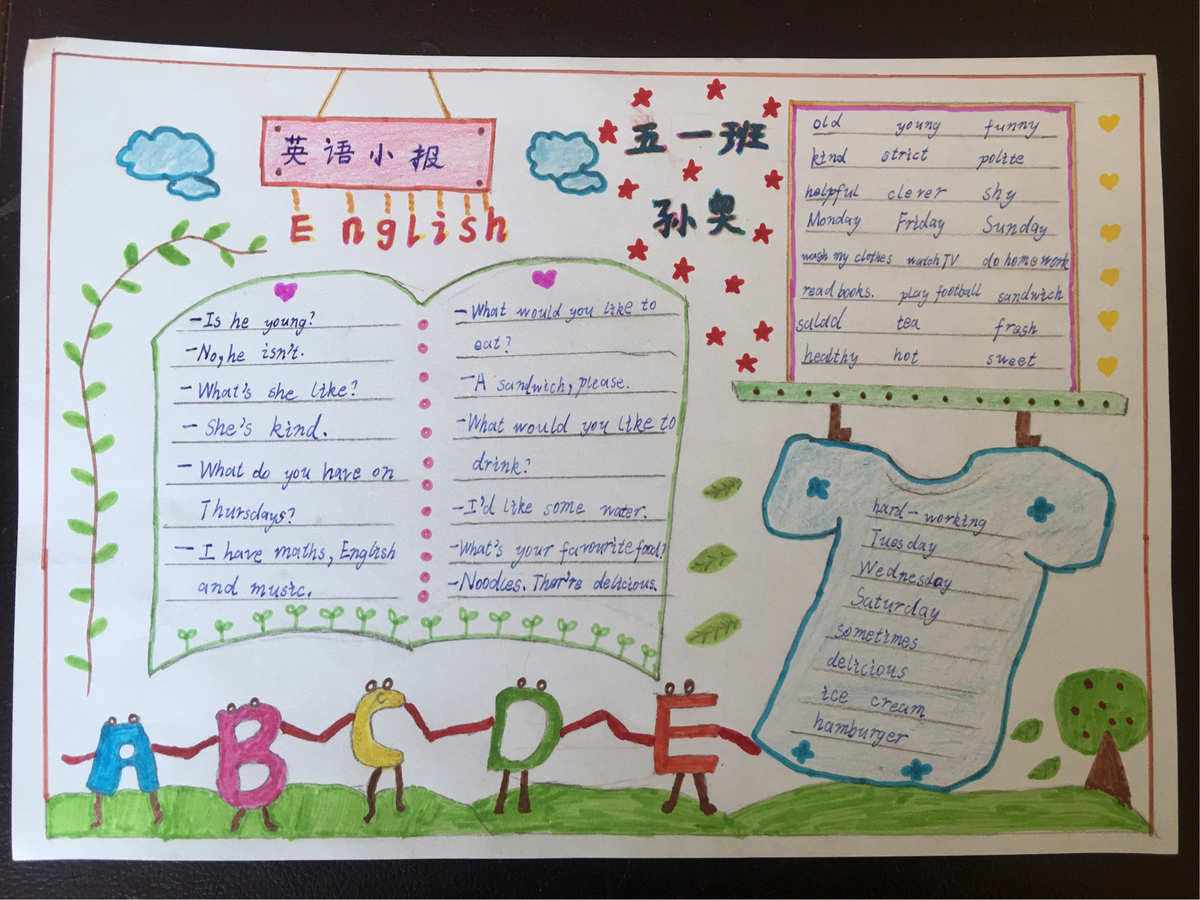 英语小报
English
五一班
孙奥
-Is he young?
-No, he isn't.
-What's she like?
-She's kind.
-What do you have on
Thursdays?
-I have maths, English
and music.
-What would you like to
eat?
-A sandwich, please.
-What would you like to
drink?
-I'd like some water.
-What's your favourite food?
-Noodles. Thar're delicious.
old young funny
kind strict polite
helpful clever shy
Monday Friday Sunday
wash my clothes watch TV do homework
read books. play football sandwich
saldd tea frash
healthy hot sweet
hard-working
Tuesday
Wednesday
Saturday
sometimes
delicious
ice cream
hamburger
A B C D E